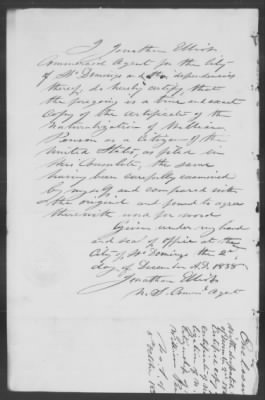 I Jonathan Elliot
Commercial Agent for the City
of St. Domingo and the dependencies
thereof, do hereby certify, that
the foregoing is a true and exact
Copy of the Certificate of the
Naturalization of William
as a Citizen of the
United States, as filed in
this Consulate, the same
having been carefully examined
by myself and compared with
the original and found to agree
therewith word for word
Given under my hand
and seal of office at the
City of St. Domingo the 2d
day of December A.D. 1858
Jonathan Elliot
U.S. Comm. Agent